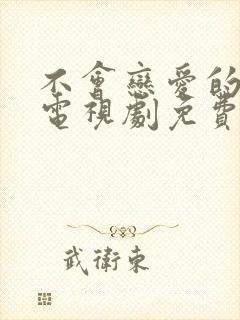 不會戀愛的
電視劇免費
武衛東